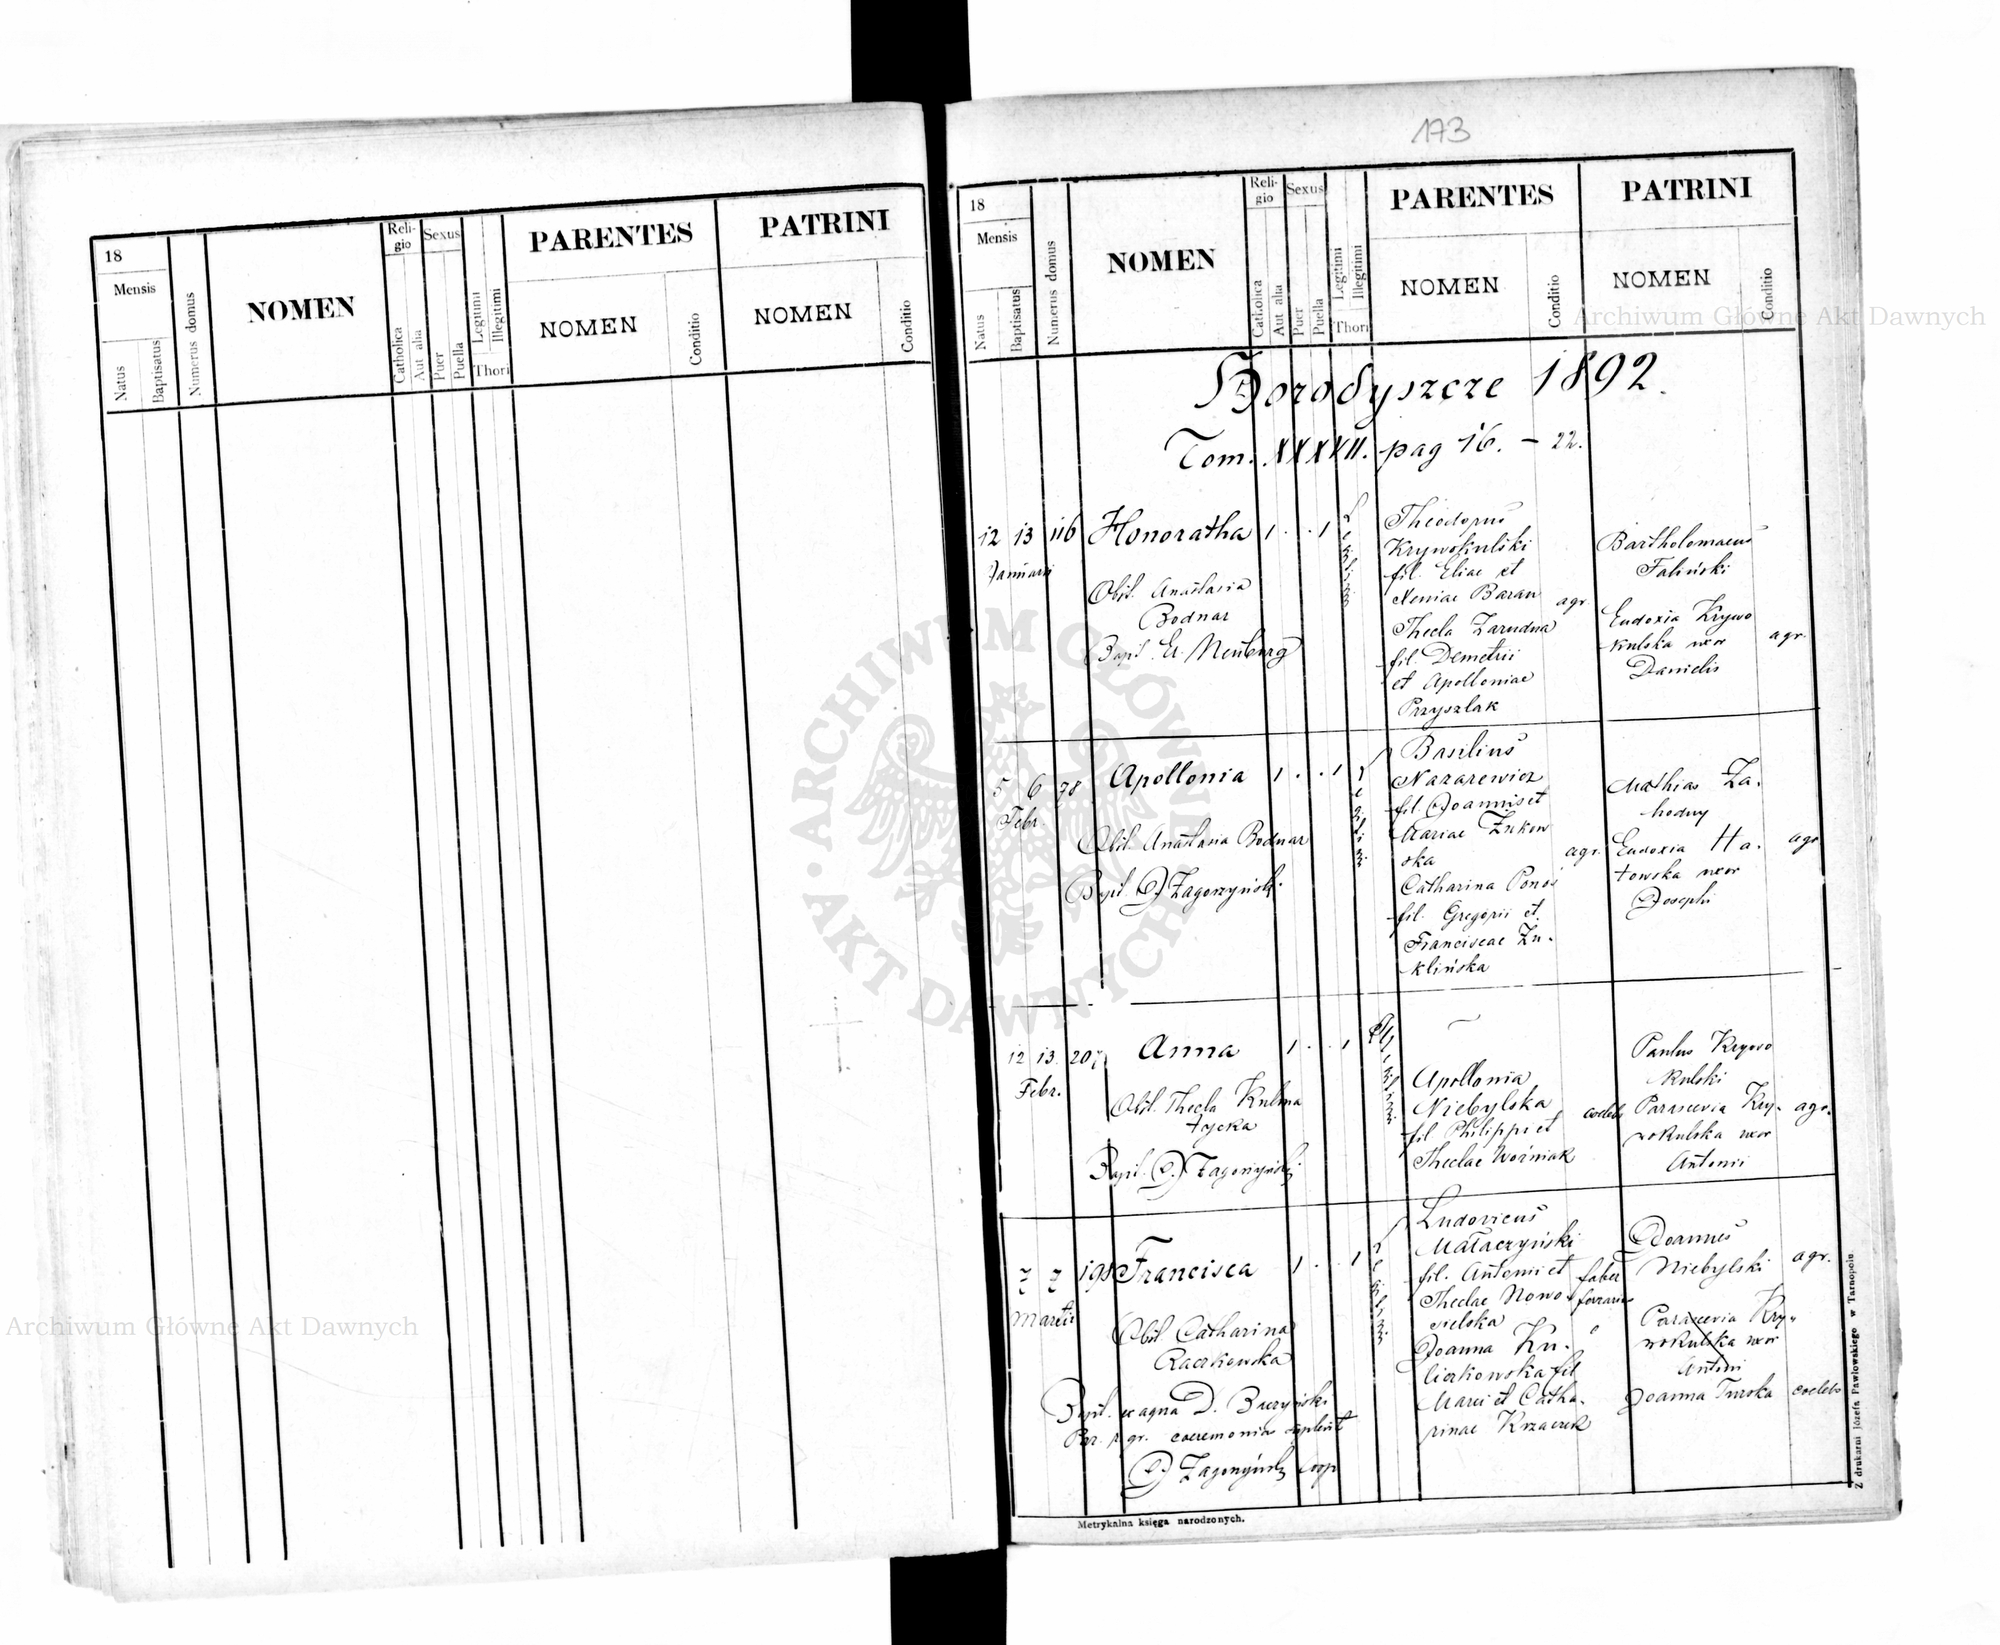 173
18
Mensis
Natus
Baptisatus
Numerus domus
NOMEN
Reli-
gio
Catholica
Aut alia
Sexus
Puer
Puella
Legitimi
Illegitimi
Thori
PARENTES
NOMEN
Conditio
PATRINI
NOMEN
Conditio
18
Mensis
Natus
Baptisatus
Numerus domus
NOMEN
Reli-
gio
Catholica
Aut alia
Sexus
Puer
Puella
Legitimi
Illegitimi
Thori
PARENTES
NOMEN
Conditio
PATRINI
NOMEN
Conditio
Archiwum Główne Akt Dawnych
Horodyszcze 1892.
Tom. XXXVII. pag 16. – 22.
12 13 116 Honoratha 1 . . 1
Januarii
Obst. Anastasia
Bodnar
Bapt. Er. Neuburg
Theodorus
Krywokulski
fil. Eliae et
Xeniae Baran
Thecla Zarudna
fil. Demetrii
et Apolloniae
Przyszlak
agr.
Bartholomaeus
Faliński
Eudoxia Krywo
kulska uxor
Danielis
agr.
5 6 78 Apollonia 1 . . 1
Febr.
Obst. Anastasia Bodnar
Bapt. J Zagorzyński.
Basilius
Nazarewicz
fil. Joannis et
Mariae Zukow
ska
Catharina Ponoś
fil. Gregorii et
Franciscae Zu-
klińska
agr.
Mathias Za-
hodny
Eudoxia Ha-
towska uxor
Josephi
agr
12 13. 207 Anna 1 . . 1
Febr.
Obst. Thecla Kulma
tycka
Bapt. J Zagorzyński.
Apollonia
Niebylska
fil Philippi et
Theclae Woźniak
coelebs
Paulus Krywo
kulski
Parascevia Kry-
wokulska uxor
Antonii
agr.
7 7 198 Francisca 1 . . 1
Martii
Obst. Catharina
Raczkowska
Bapt. ex aqua D. Buczyński
Par. r. gr. caeremonias supplevit
J Zagorzyński coop
Ludovicus
Małaczyński
fil. Antonii et
Theclae Nowo-
sielska
Joanna Ku-
liczkowska fil
Marci et Catha-
rinae Krzaczek
faber
ferrarius
Joannes
Niebylski
agr.
Parascevia Kry-
wokulska uxor
Antoni
Joanna Turska coelebs
Metrykalna księga narodzonych.
Z drukarni Józefa Pawłowskiego w Tarnopolu.
ARCHIWUM GŁÓWNE
AKT DAWNYCH
Archiwum Główne Akt Dawnych